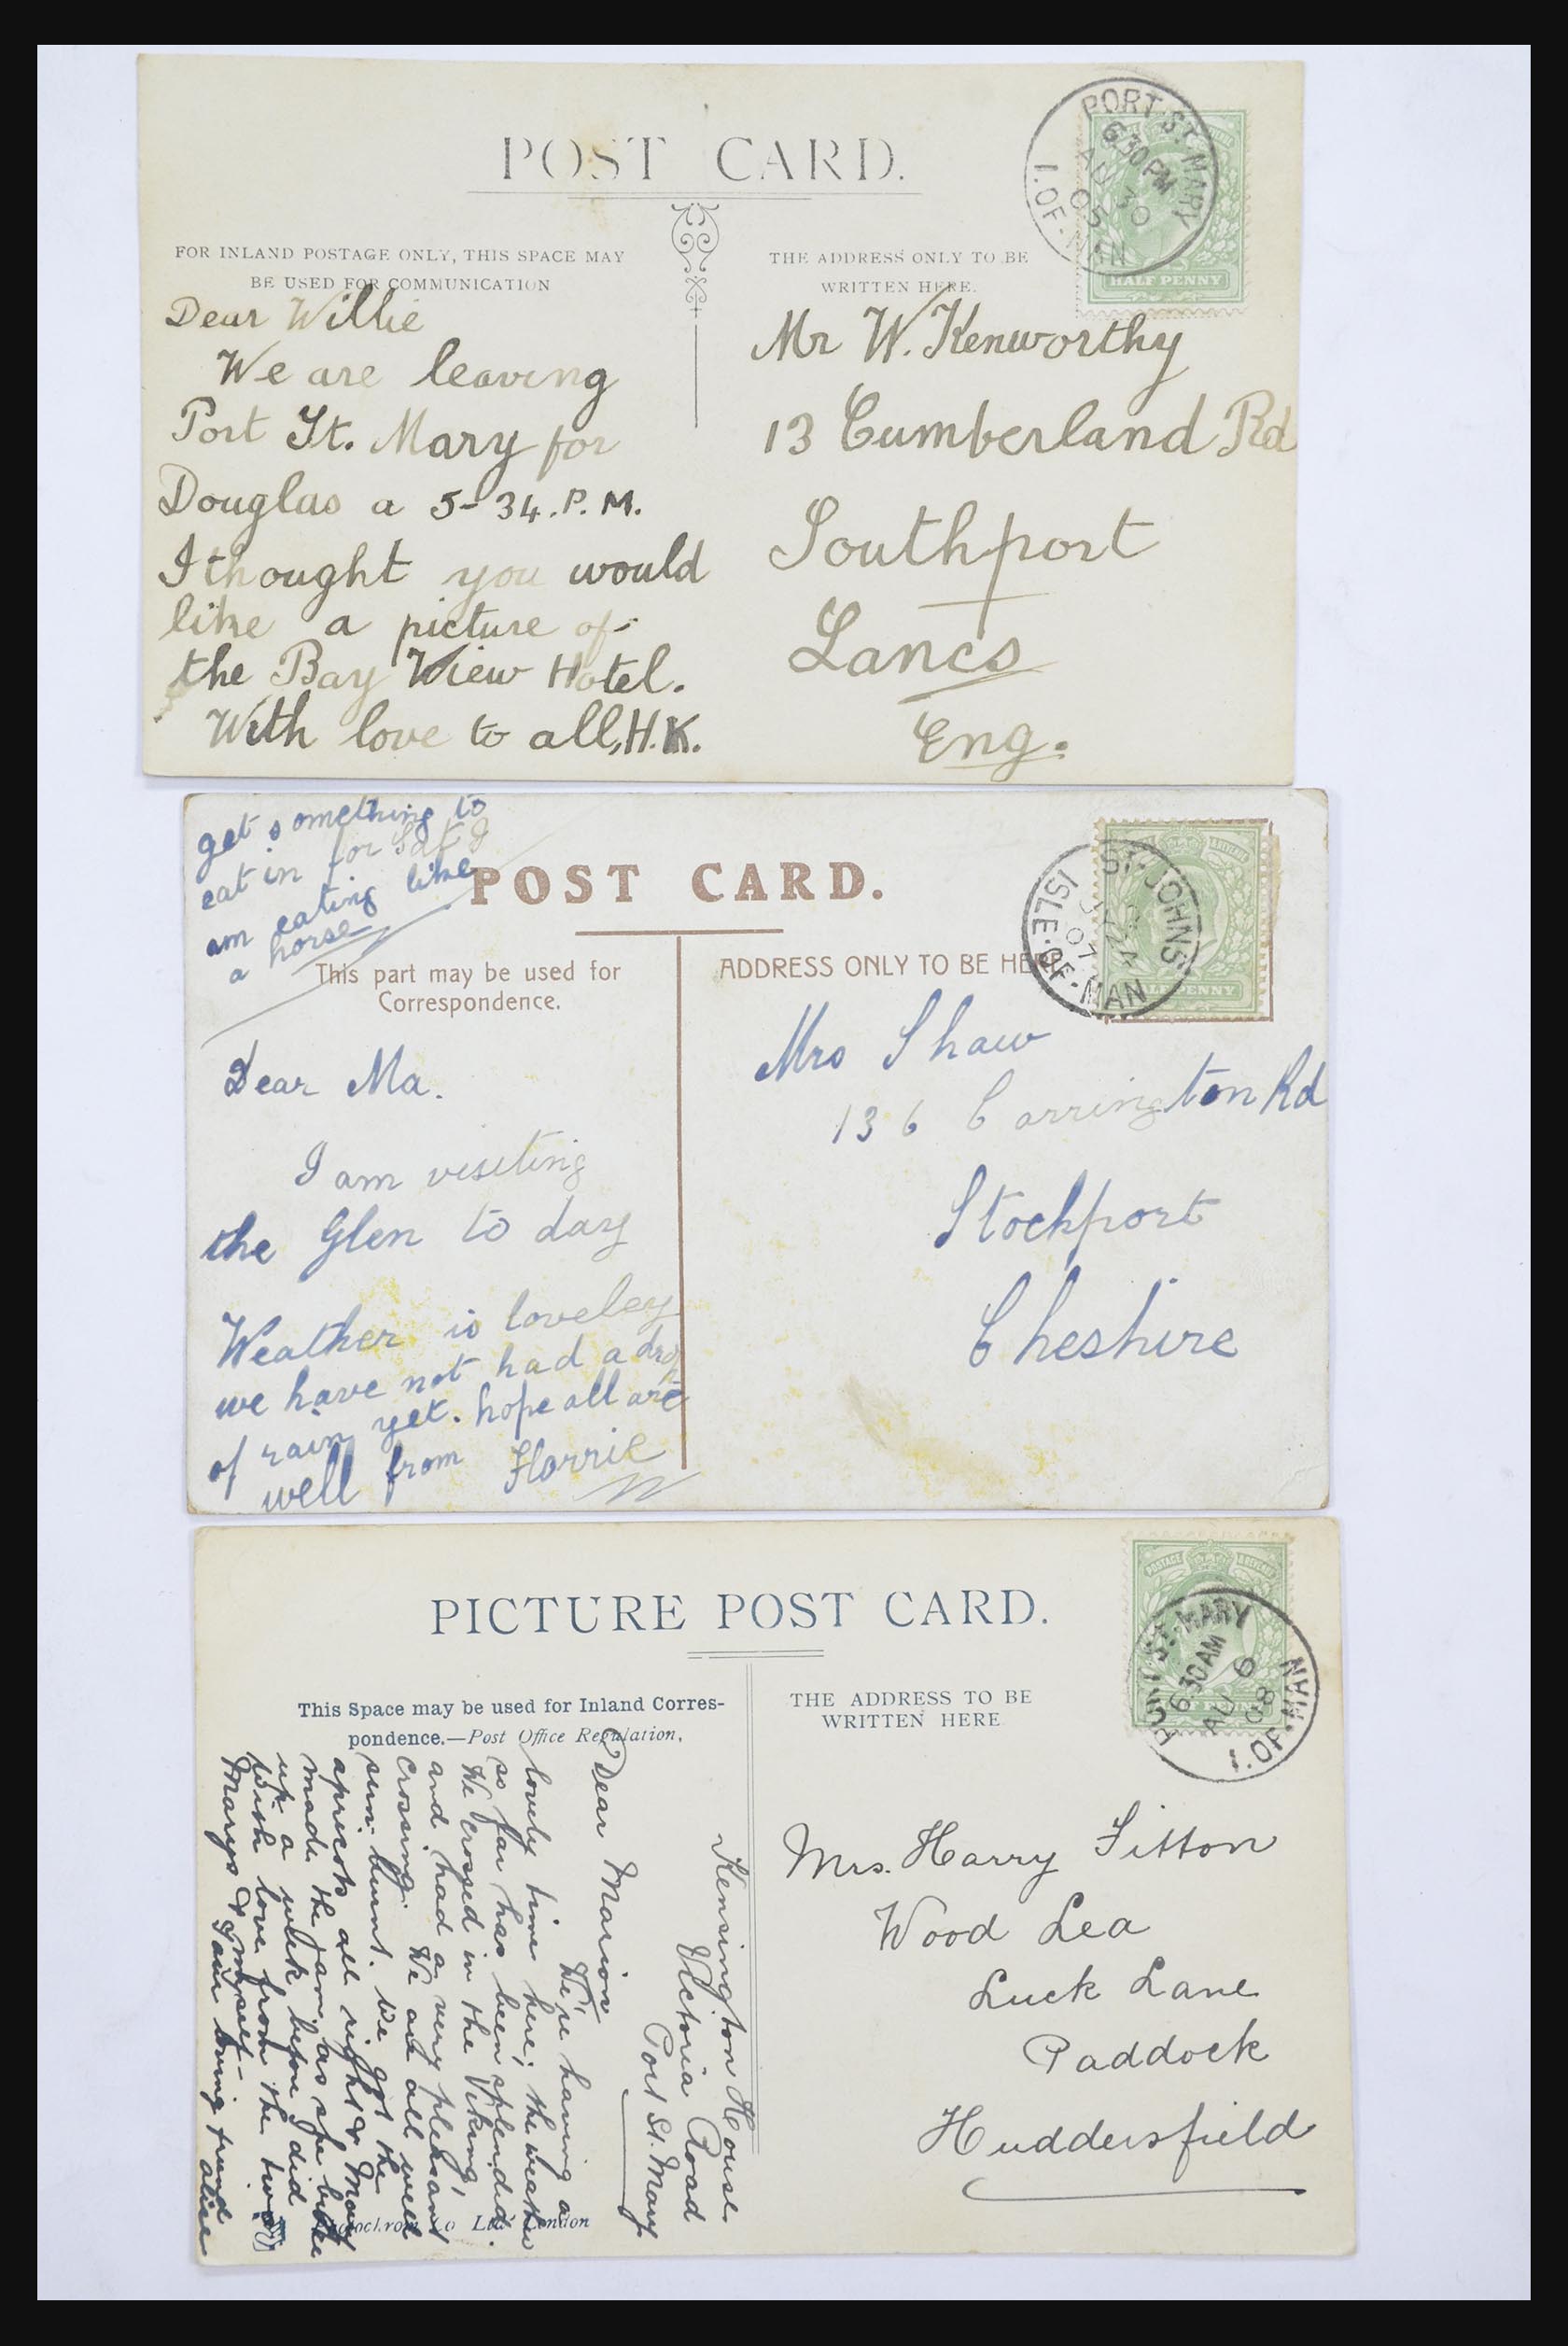 POST CARD.
FOR INLAND POSTAGE ONLY, THIS SPACE MAY
BE USED FOR COMMUNICATION
THE ADDRESS ONLY TO BE
WRITTEN HERE.
PORT ST. MARY
6.30 PM
AU 30
05
I. OF. MAN
HALF PENNY
Dear Willie
We are leaving
Port St. Mary for
Douglas a 5-34. P. M.
I thought you would
like a picture of
the Bay View Hotel.
With love to all, H.K.
Mr W. Kenworthy
13 Cumberland Rd
Southport
Lancs
Eng.
get something to
eat in for Sat I
am eating like
a horse
POST CARD.
This part may be used for
Correspondence.
ADDRESS ONLY TO BE HERE
ST. JOHNS
24
07
ISLE. OF. MAN
HALF PENNY
Dear Ma.
I am visiting
the Glen to day
Weather is loveley
we have not had a drop
of rain yet. hope all are
well from Horrie
Mrs Shaw
136 Carrington Rd
Stockport
Cheshire
PICTURE POST CARD.
This Space may be used for Inland Corres-
pondence.—Post Office Regulation.
THE ADDRESS TO BE
WRITTEN HERE
POSTAGE & REVENUE
PORT ST. MARY
6.30 AM
AU 6
08
I. OF. MAN
Kensington House
Victoria Road
Port St. Mary
Dear Marion
We're having a
lovely time here, the weather
so far has been splendid.
We crossed in the Viking,
and had a very pleasant
crossing. We are all well
sun-burnt. We got the
apricots all right & Mary
made the jam, as she broke
up a week before I did
With love from the two
Marys & myself—
Your loving friend
Alice
Photochrom Co Ltd London
Mrs. Harry Fitton
Wood Lea
Luck Lane
Paddock
Huddersfield